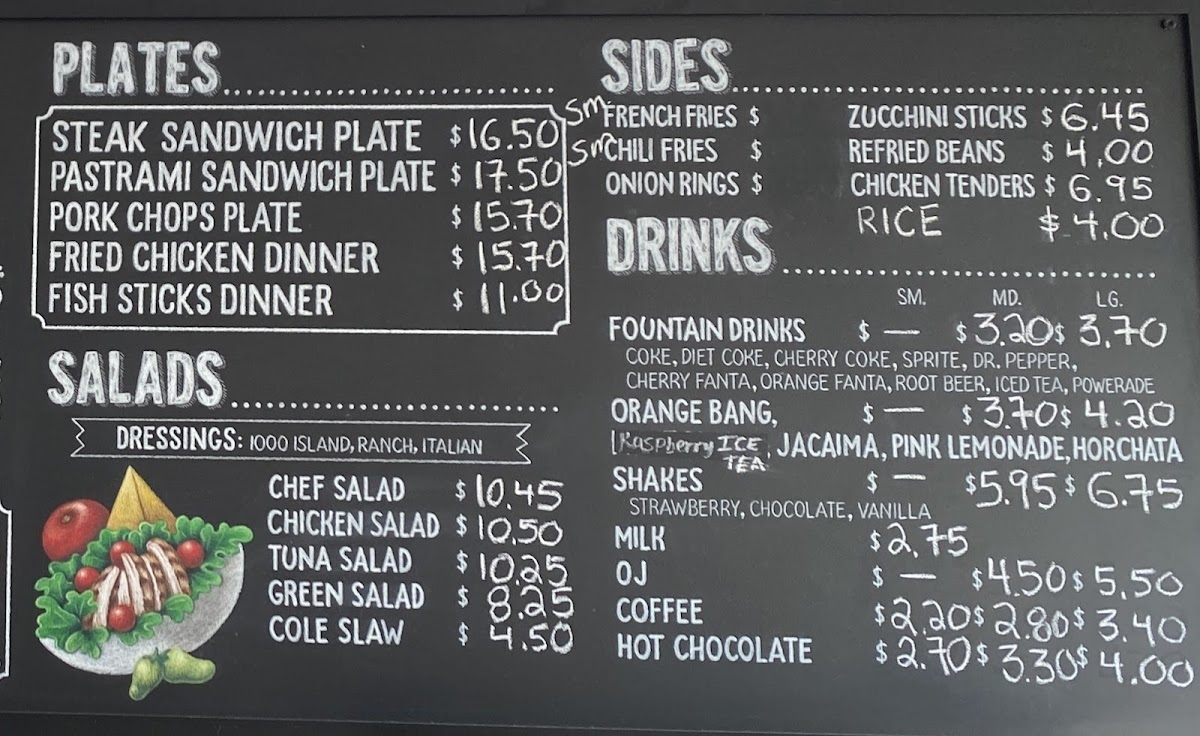 PLATES
STEAK SANDWICH PLATE $16.50
PASTRAMI SANDWICH PLATE $17.50
PORK CHOPS PLATE $15.70
FRIED CHICKEN DINNER $15.70
FISH STICKS DINNER $11.00
SALADS
DRESSINGS: 1000 ISLAND, RANCH, ITALIAN
CHEF SALAD $10.45
CHICKEN SALAD $10.50
TUNA SALAD $10.25
GREEN SALAD $8.25
COLE SLAW $4.50
SIDES
Sm FRENCH FRIES $ ZUCCHINI STICKS $6.45
Sm CHILI FRIES $ REFRIED BEANS $4.00
ONION RINGS $ CHICKEN TENDERS $6.95
RICE $4.00
DRINKS
SM. MD. LG.
FOUNTAIN DRINKS $ — $3.20 $3.70
COKE, DIET COKE, CHERRY COKE, SPRITE, DR. PEPPER,
CHERRY FANTA, ORANGE FANTA, ROOT BEER, ICED TEA, POWERADE
ORANGE BANG, $ — $3.70 $4.20
Raspberry ICE TEA, JACAIMA, PINK LEMONADE, HORCHATA
SHAKES $ — $5.95 $6.75
STRAWBERRY, CHOCOLATE, VANILLA
MILK $2.75
OJ $ — $4.50 $5.50
COFFEE $2.20 $2.80 $3.40
HOT CHOCOLATE $2.70 $3.30 $4.00